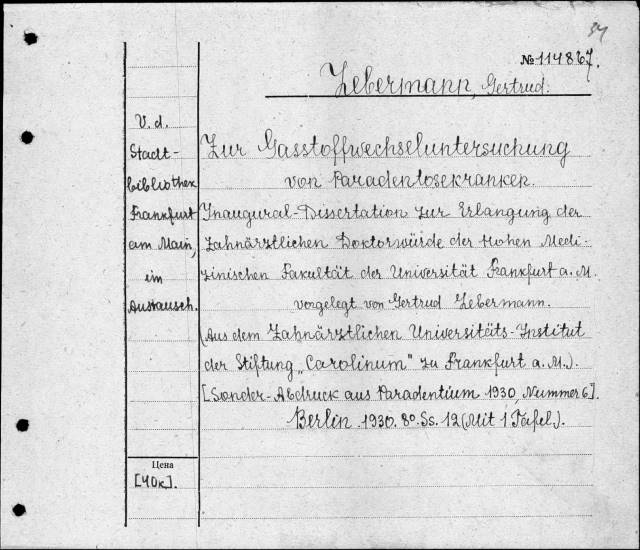 34
№ 114867.
Zebermann, Gertrud.
V. d.
Stadt-
bibliothek
Frankfurt
am Main,
im
Austausch.
Zur Gasstoffwechseluntersuchung
von Paradentosekranken.
Inaugural-Dissertation zur Erlangung der
Zahnärztlichen Doktorwürde der Hohen Medi-
zinischen Fakultät der Universität Frankfurt a. M.
vorgelegt von Gertrud Zebermann.
(Aus dem Zahnärztlichen Universitäts-Institut
der Stiftung „Carolinum" zu Frankfurt a. M.).
[Sonder-Abdruck aus Paradentium 1930, Nummer 6].
Berlin. 1930. 8°. Ss. 12 (Mit 1 Tafel).
Цена
[40к].